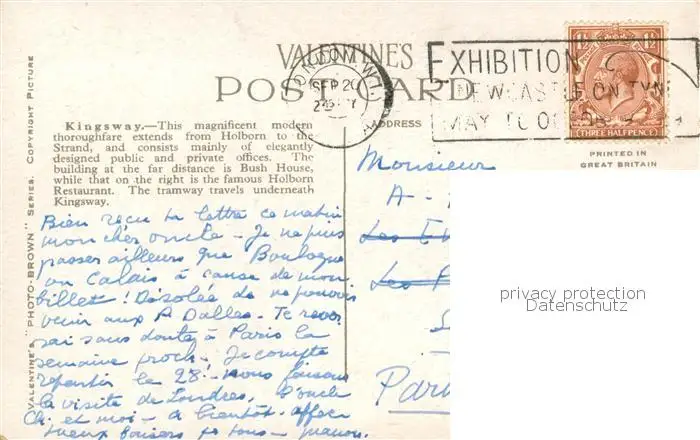 VALENTINE'S
POST CARD
LONDON. W.1.
SEP 20
EXHIBITION
NEWCASTLE ON TYNE
MAY TO OC
THREE HALFPENCE
PRINTED IN
GREAT BRITAIN
ADDRESS
VALENTINE'S "PHOTO-BROWN" SERIES. COPYRIGHT PICTURE
Kingsway.—This magnificent modern
thoroughfare extends from Holborn to the
Strand, and consists mainly of elegantly
designed public and private offices. The
building at the far distance is Bush House,
while that on the right is the famous Holborn
Restaurant. The tramway travels underneath
Kingsway.
Bien reçu ta lettre ce matin
mon cher oncle - Je ne puis
passer ailleurs que Boulogne
ou Calais à cause de mon
billet ! Désolée de ne pouvoir
venir aux P. Dalles. Te rever
rai sans doute à Paris la
semaine proch. Je compte
repartir le 28. nous faisons
la visite de Londres. l'oncle
Ch. et moi - à bientôt. affec
tueux baisers à tous - manon.
Monsieur
A -
Les
Les
Par
privacy protection
Datenschutz